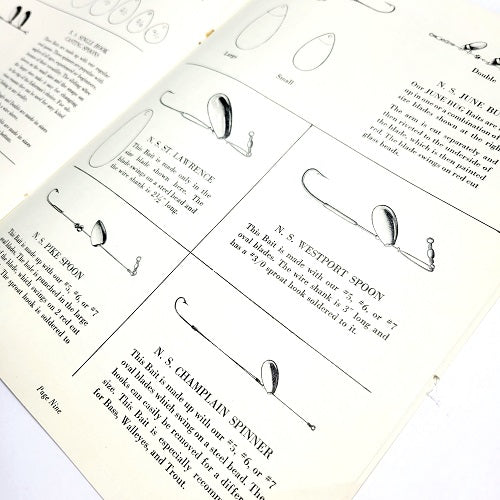 S. S. SINGLE HOOK
CASTING SPOONS
Large
Small
Double
N. S. JUNE BU
Our JUNE BUG Baits are
up in one or a combination of
size blades shown at the right
The arm is cut separately and
then riveted to the underside of
blade, which is then painted
red. The blade swings on red cut
glass beads.
N. S. ST. LAWRENCE
This Bait is made only in the
size blade shown here. The
blade swings on a steel bead and
the wire shank is 2½" long.
N. S. WESTPORT SPOON
This Bait is made with our #5, #6, or #7
oval blades. The wire shank is 3" long and
has a #3/0 sproat hook soldered to it.
N. S. PIKE SPOON
Bait is made up with our #5, #6, or #7
blades. The hole is punched in the large
blade, which swings on 2 red cut
The sproat hook is soldered to
N. S. CHAMPLAIN SPINNER
This Bait is made up with our #5, #6, or #7
oval blades which swing on a steel bead. The
hooks can easily be removed for a differ
size. This Bait is especially recomm
for Bass, Walleyes, and Trout.
Page Nine